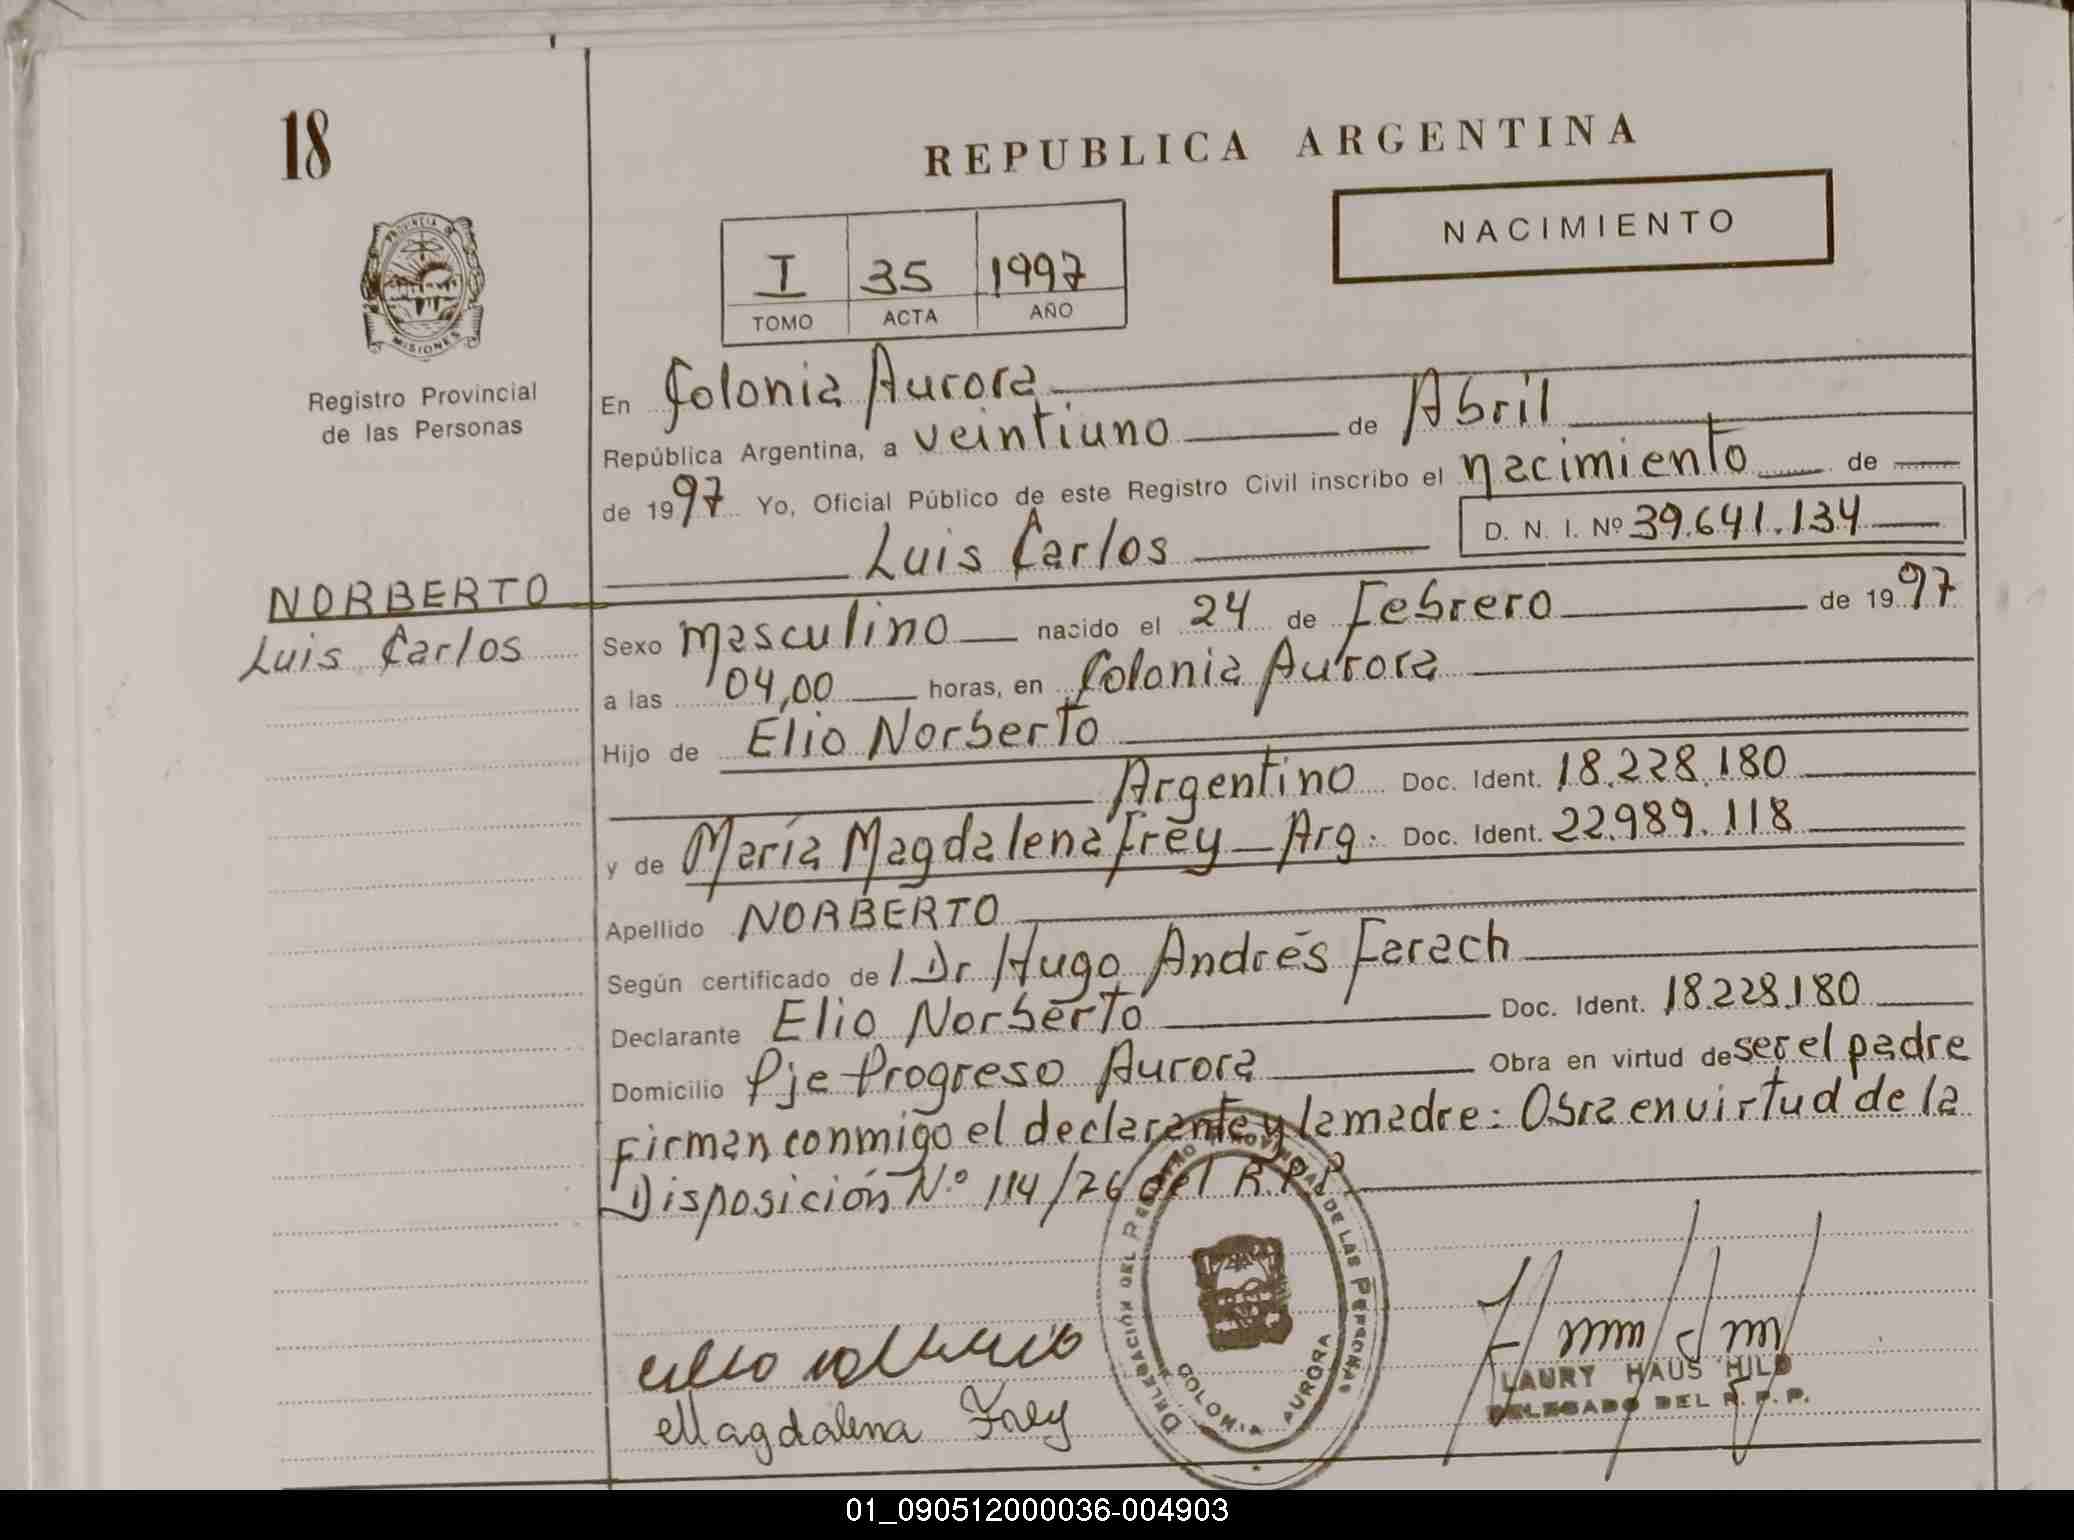 18
REPUBLICA ARGENTINA
NACIMIENTO
PROVINCIA DE
MISIONES
I 35 1997
TOMO ACTA AÑO
Registro Provincial
de las Personas
En Colonia Aurora
República Argentina, a veintiuno de Abril
de 1997 Yo, Oficial Público de este Registro Civil inscribo el nacimiento de
D. N. I. Nº 39.641.134
Luis Carlos
NORBERTO
Luis Carlos
Sexo masculino nacido el 24 de Febrero de 1997
a las 04,00 horas, en Colonia Aurora
Hijo de Elio Norberto
Argentino Doc. Ident. 18.228.180
y de María Magdalena Frey Arg. Doc. Ident. 22.989.118
Apellido NORBERTO
Según certificado de Dr Hugo Andrés Farach
Declarante Elio Norberto Doc. Ident. 18.228.180
Domicilio Pje Progreso Aurora Obra en virtud de ser el padre
Firman conmigo el declarante y la madre: Obra en virtud de la
Disposición N.º 114/76 del R.P.P.
DELEGACIÓN DEL REGISTRO PROVINCIAL DE LAS PERSONAS
COLONIA AURORA
Magdalena Frey
LAURY HAUS HILD
DELEGADO DEL R. P. P.
01_090512000036-004903